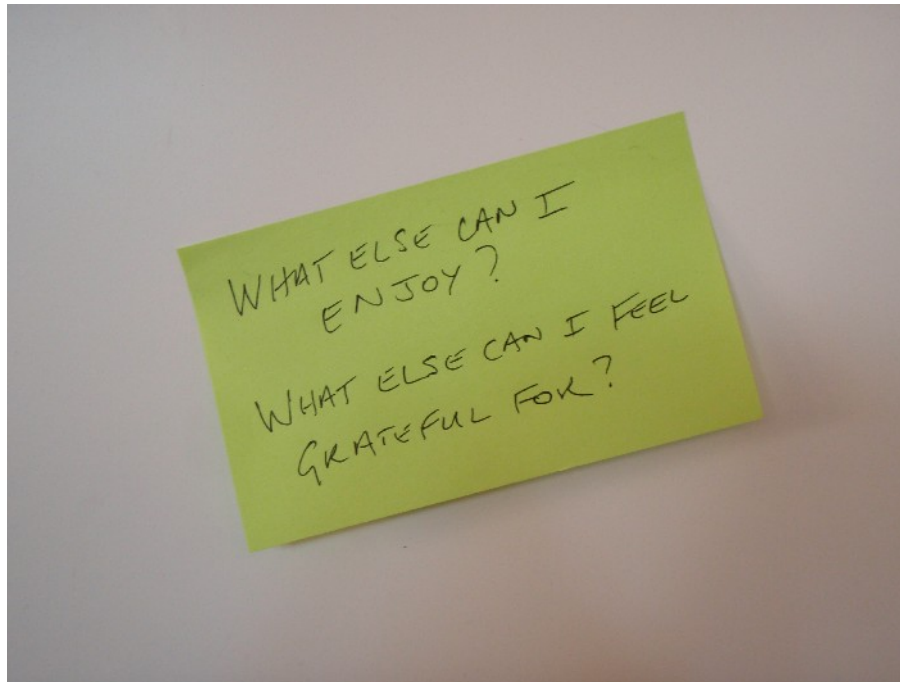 WHAT ELSE CAN I
ENJOY?
WHAT ELSE CAN I FEEL
GRATEFUL FOR?